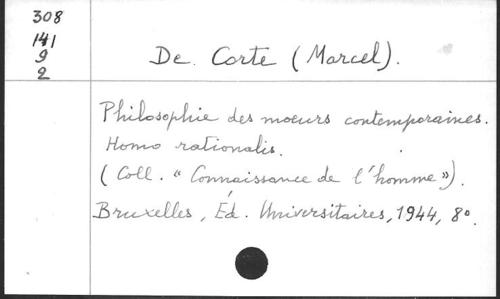 308
141
9
2
De Corte (Marcel).
Philosophie des moeurs contemporaines.
Homo rationalis.
(Coll. "Connaissance de l'homme").
Bruxelles, Éd. Universitaires, 1944, 8°.